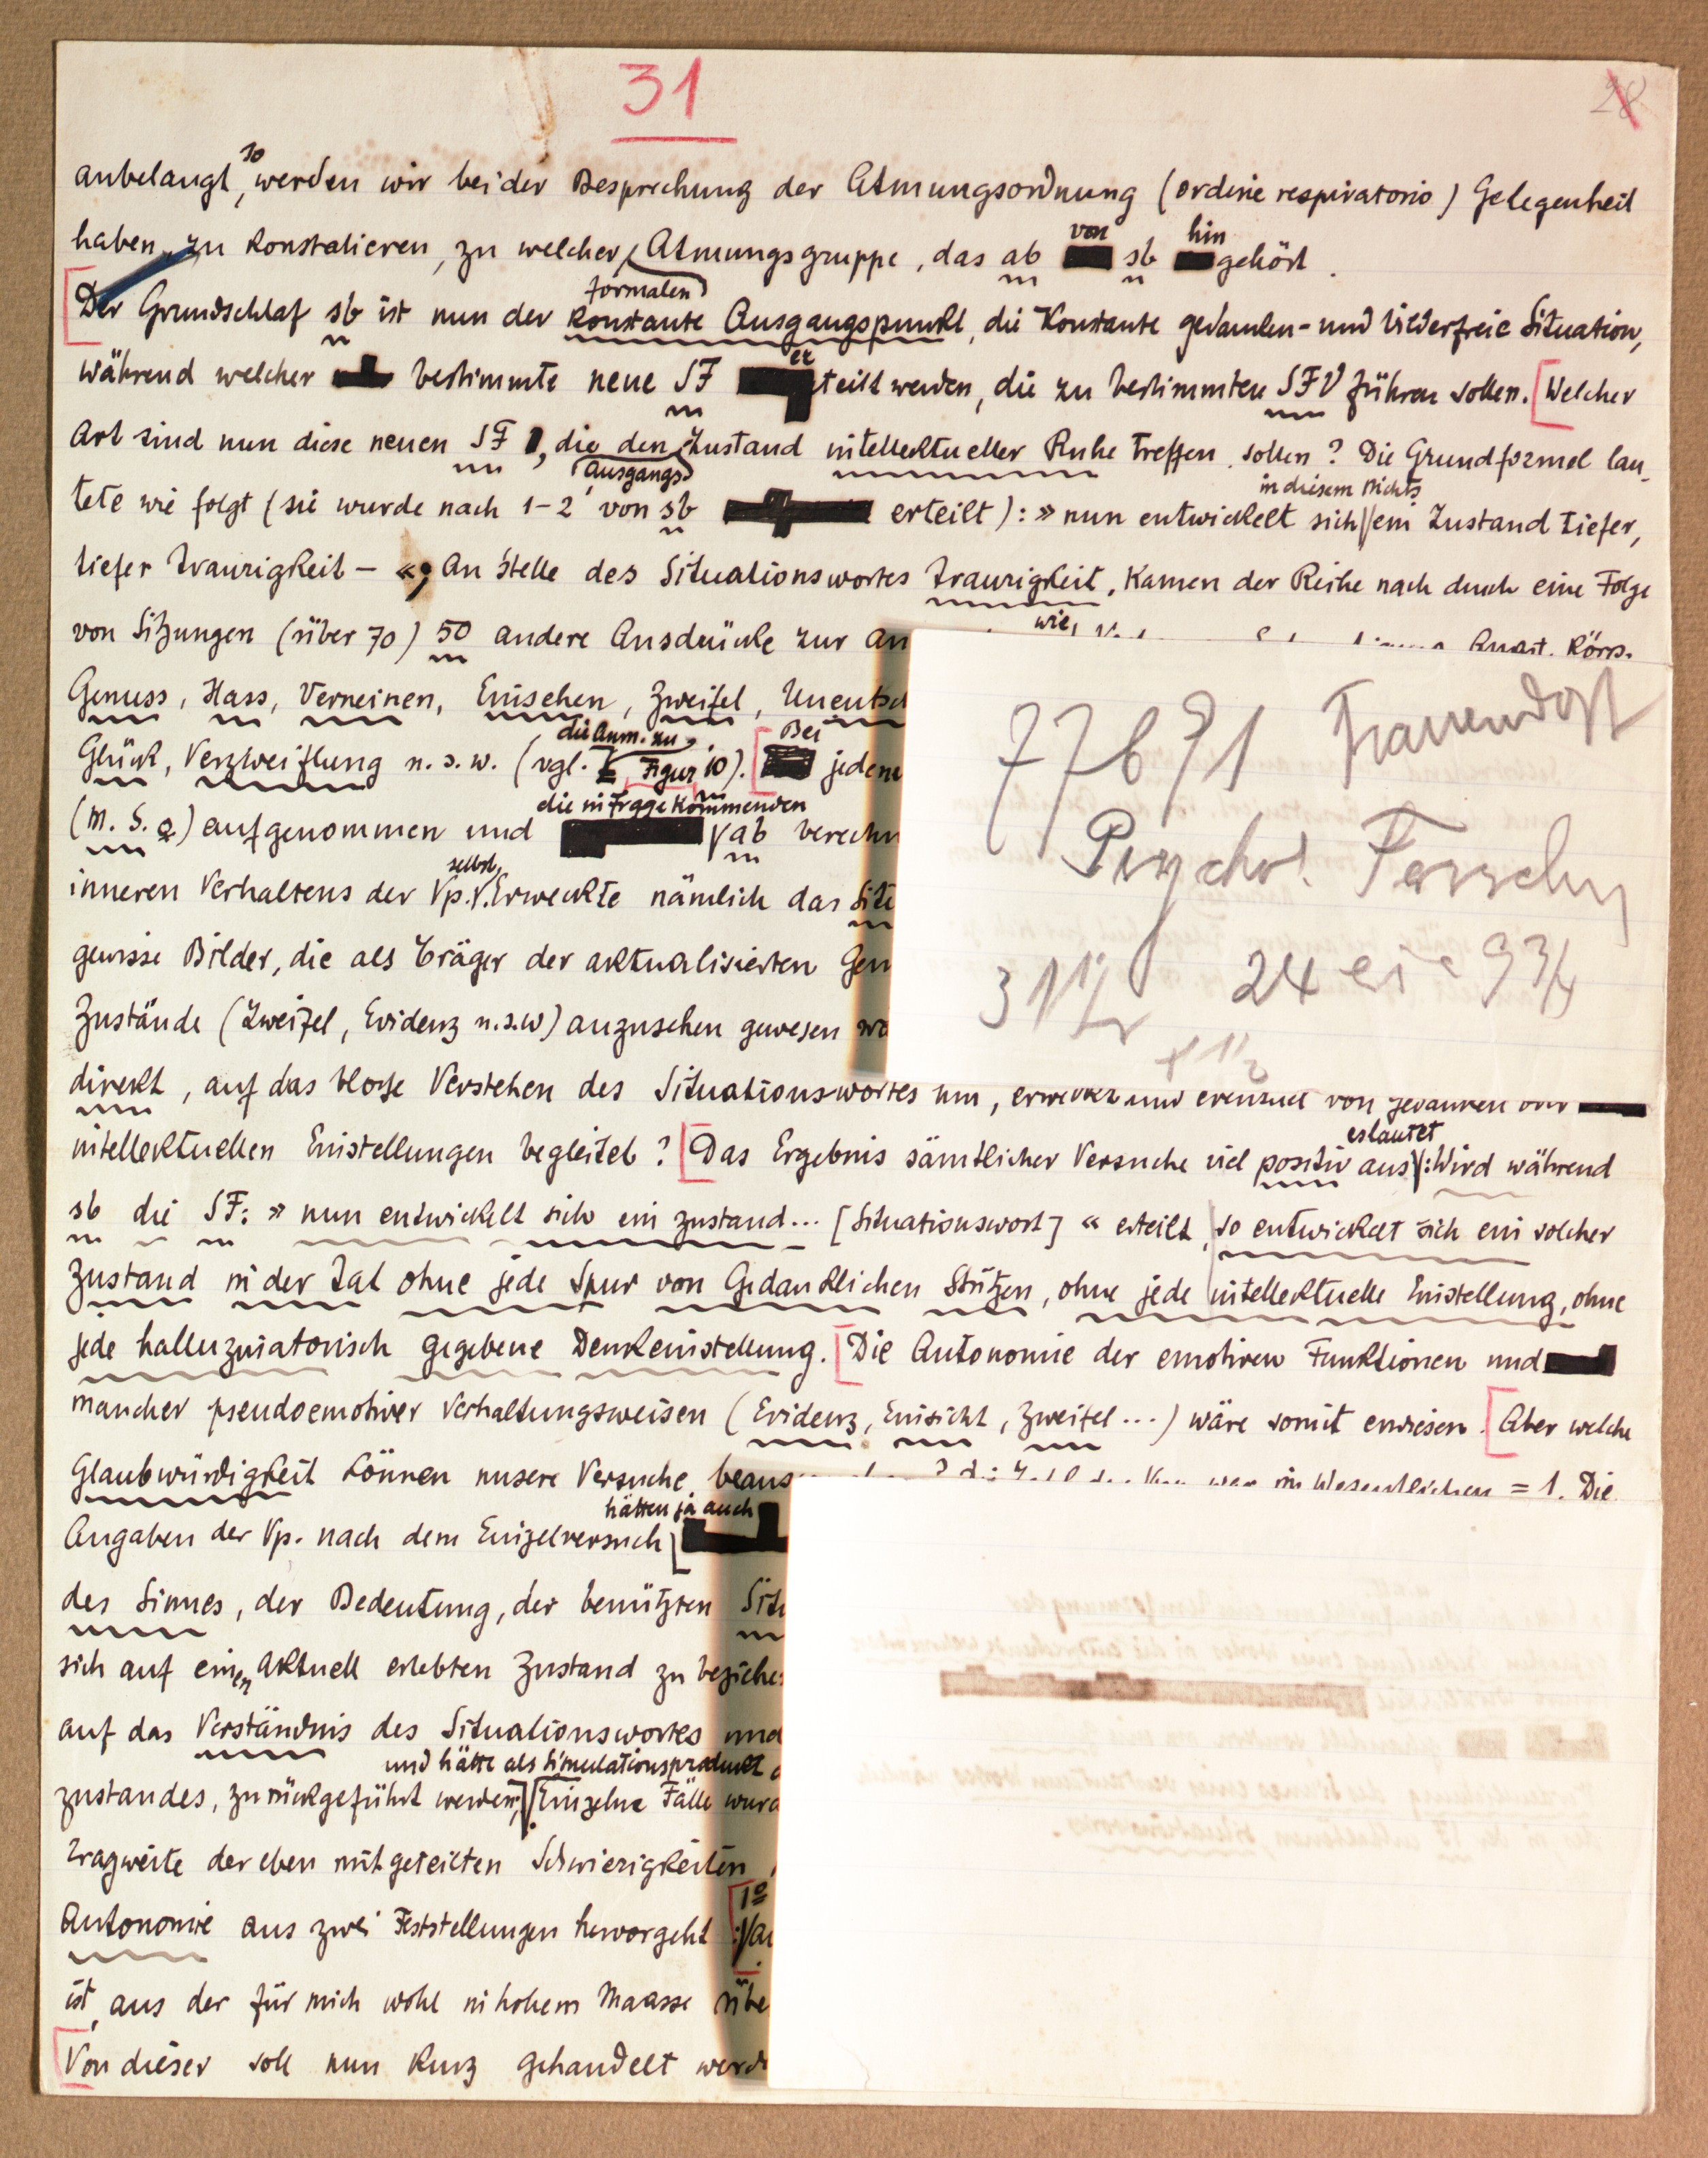 31
28
anbelangt, so werden wir bei der Besprechung der Atmungsordnung (ordine respiratorio) Gelegenheit
haben, zu konstatieren, zu welcher Atmungsgruppe, das ab von sb hingehört.
Der Grundschlaf sb ist nun der formalen konstante Ausgangspunkt, die konstante gedanken- und bilderfreie Situation,
während welcher bestimmte neue SF erteilt werden, die zu bestimmten SFV führen sollen. [Welcher
Art sind nun diese neuen SF, die den (Ausgangs) Zustand intellektueller Ruhe treffen sollen? Die Grundformel lau-
tete wie folgt (sie wurde nach 1-2' von sb erteilt): » nun entwickelt sich in diesem Nichts ein Zustand tiefer,
tiefer Traurigkeit – «; An Stelle des Situationswortes Traurigkeit, kamen der Reihe nach durch eine Folge
von Sitzungen (über 70) 50 andere Ausdrücke zur
wie
Genuss, Hass, Verneinen, Einsehen, Zweifel,
Glück, Verzweiflung u. s. w. (vgl. die Anm. zu Figur 10). [Bei
(M. S. a) aufgenommen und die in Frage kommenden ab
inneren Verhaltens der Vp. selbst. Erweckte nämlich das
gewisse Bilder, die als Träger der aktualisierten
Zustände (Zweifel, Evidenz u.s.w) anzusehen gewesen
direkt, auf das blosse Verstehen des Situationswortes hin, erweckt und eventuell von Gedanken oder
intellektuellen Einstellungen begleitet? [Das Ergebnis sämtlicher Versuche viel positiv aus; es lautet: Wird während
sb die SF: » nun entwickelt sich ein Zustand... [Situationswort] « erteilt, so entwickelt sich ein solcher
Zustand in der Tat ohne jede Spur von Gedanklichen Stützen, ohne jede intellektuelle Einstellung, ohne
jede halluzinatorisch gegebene Denkeinstellung. [Die Autonomie der emotiven Funktionen und
mancher pseudoemotiver Verhaltungsweisen (Evidenz, Einsicht, Zweifel...) wäre somit erwiesen. [Aber welche
Glaubwürdigkeit können unsere Versuche
im Wesentlichen = 1. Die
Angaben der Vp. nach dem Einzelversuch hätten ja auch
des Sinnes, der Bedeutung, der benützten
sich auf einen aktuell erlebten Zustand zu
auf das Verständnis des Situationswortes und
zustandes, zurückgeführt werden; und hätte als Simulationsprodukt [Einzelne Fälle
Tragweite der eben mitgeteilten Schwierigkeiten
Autonomie aus zwei Feststellungen hervorgeht: 1º
ist, aus der für mich wohl in hohem Maasse
[Von dieser soll nun kurz gehandelt
Psychol.
24